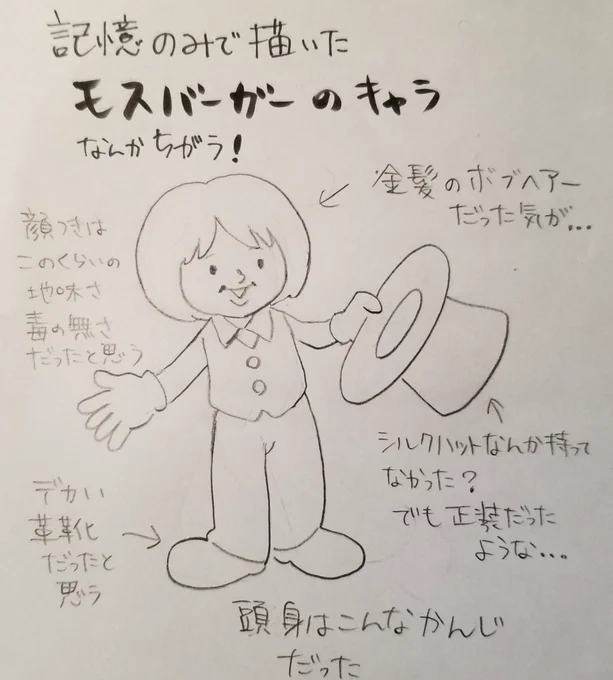 記憶のみで描いた
モスバーガーのキャラ
なんかちがう!
金髪のボブヘアー
だった気が...
顔つきは
このくらいの
地味さ
毒の無さ
だったと思う
シルクハットなんか持って
なかった?
でも正装だった
ような...
デカい
革靴
だったと
思う
頭身はこんなかんじ
だった